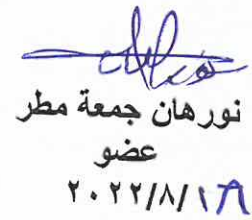 نورهان جمعة مطر
عضو
٢٠٢٢/٨/١٦